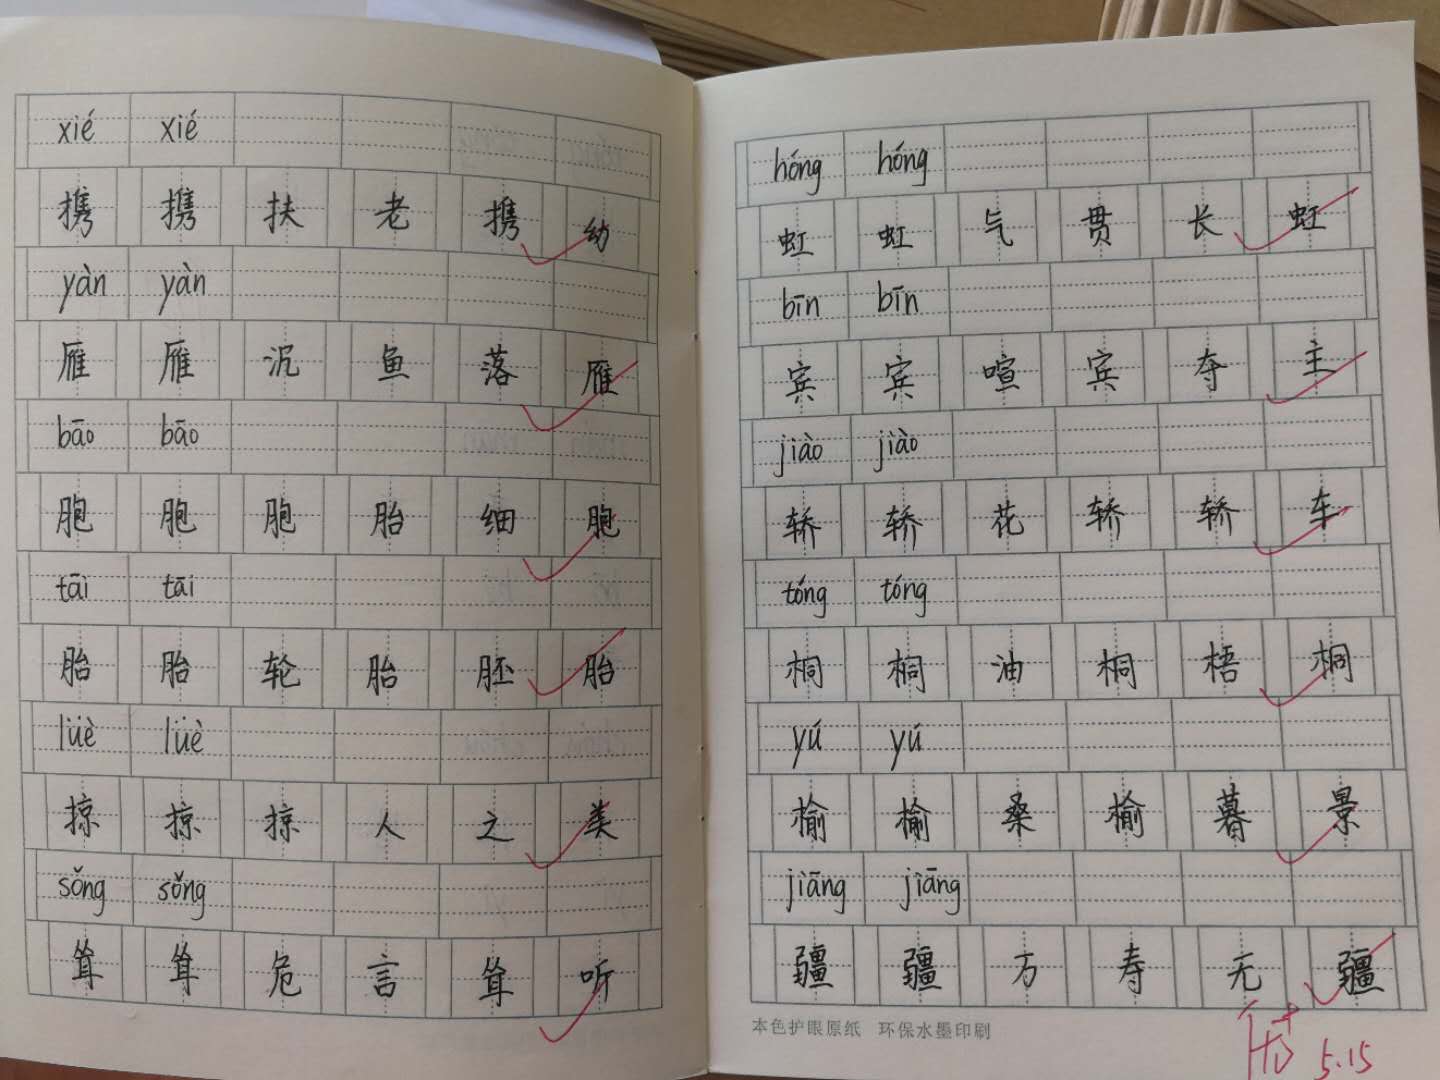 xié xié
携 携 扶 老 携 幼
yàn yàn
雁 雁 沉 鱼 落 雁
bāo bāo
胞 胞 胞 胎 细 胞
tāi tāi
胎 胎 轮 胎 胚 胎
lüè lüè
掠 掠 掠 人 之 美
sǒng sǒng
耸 耸 危 言 耸 听
hóng hóng
虹 虹 气 贯 长 虹
bīn bīn
宾 宾 喧 宾 夺 主
jiào jiào
轿 轿 花 轿 轿 车
tóng tóng
桐 桐 油 桐 梧 桐
yú yú
榆 榆 桑 榆 暮 景
jiāng jiāng
疆 疆 万 寿 无 疆
本色护眼原纸 环保水墨印刷
5.15